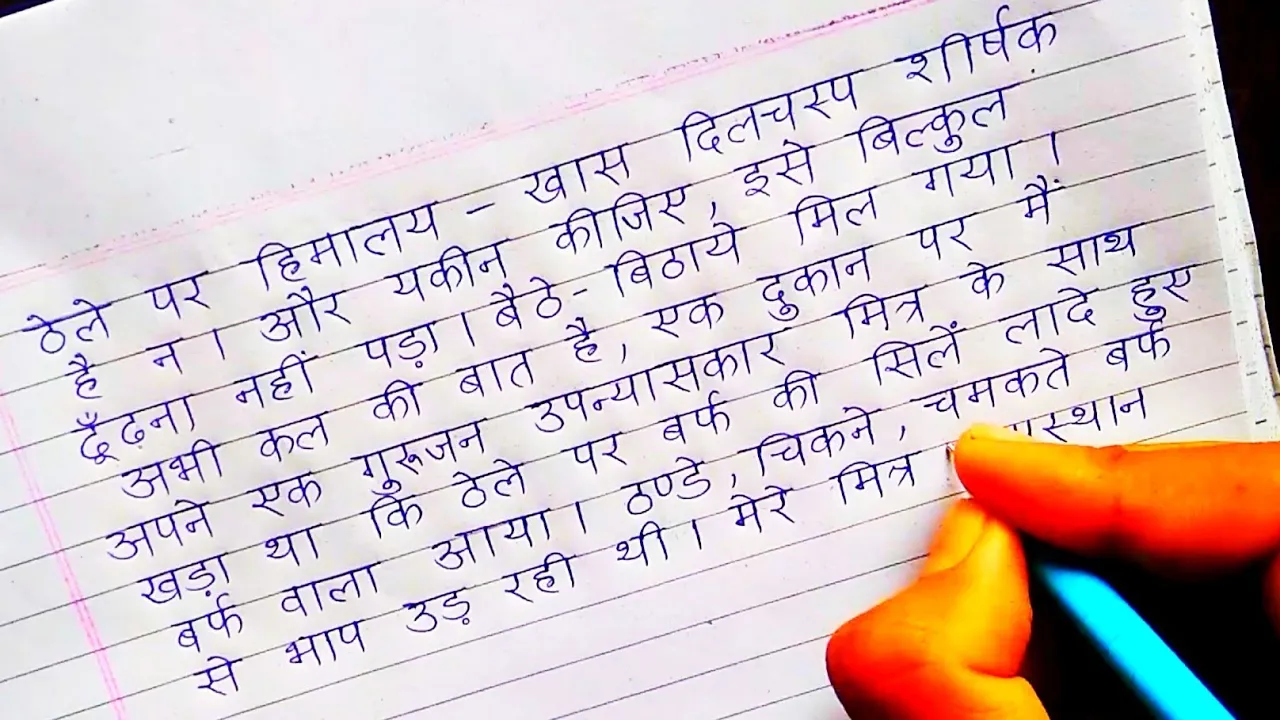 ठेले पर हिमालय - खास दिलचस्प शीर्षक
है न । और यकीन कीजिए, इसे बिल्कुल
ढूँढ़ना नहीं पड़ा । बैठे-बिठाये मिल गया ।
अभी कल की बात है, एक दुकान पर मैं
अपने एक गुरूजन उपन्यासकार मित्र के साथ
खड़ा था कि ठेले पर बर्फ की सिलें लादे हुए
बर्फ वाला आया । ठण्डे, चिकने, चमकते बर्फ
से भाप उड़ रही थी । मेरे मित्र